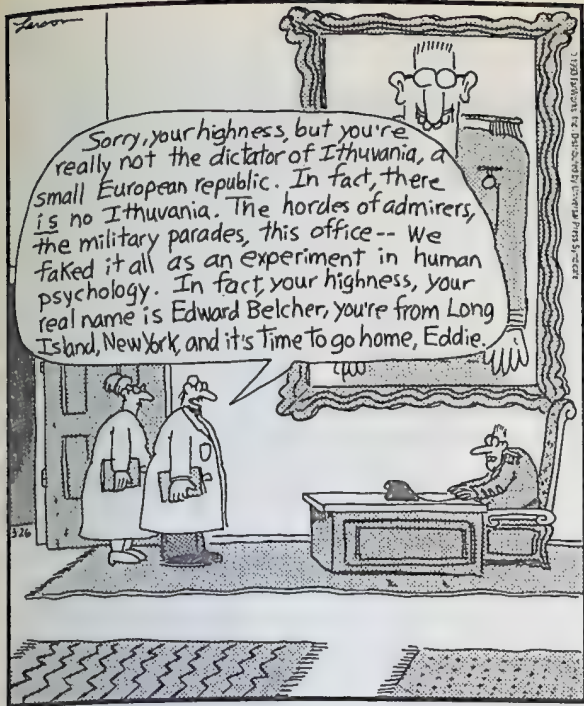 Larson
Sorry, your highness, but you're
really not the dictator of Ithuvania, a
small European republic. In fact, there
is no Ithuvania. The hordes of admirers,
the military parades, this office-- We
faked it all as an experiment in human
psychology. In fact, your highness, your
real name is Edward Belcher, you're from Long
Island, New York, and it's time to go home, Eddie.
3-26